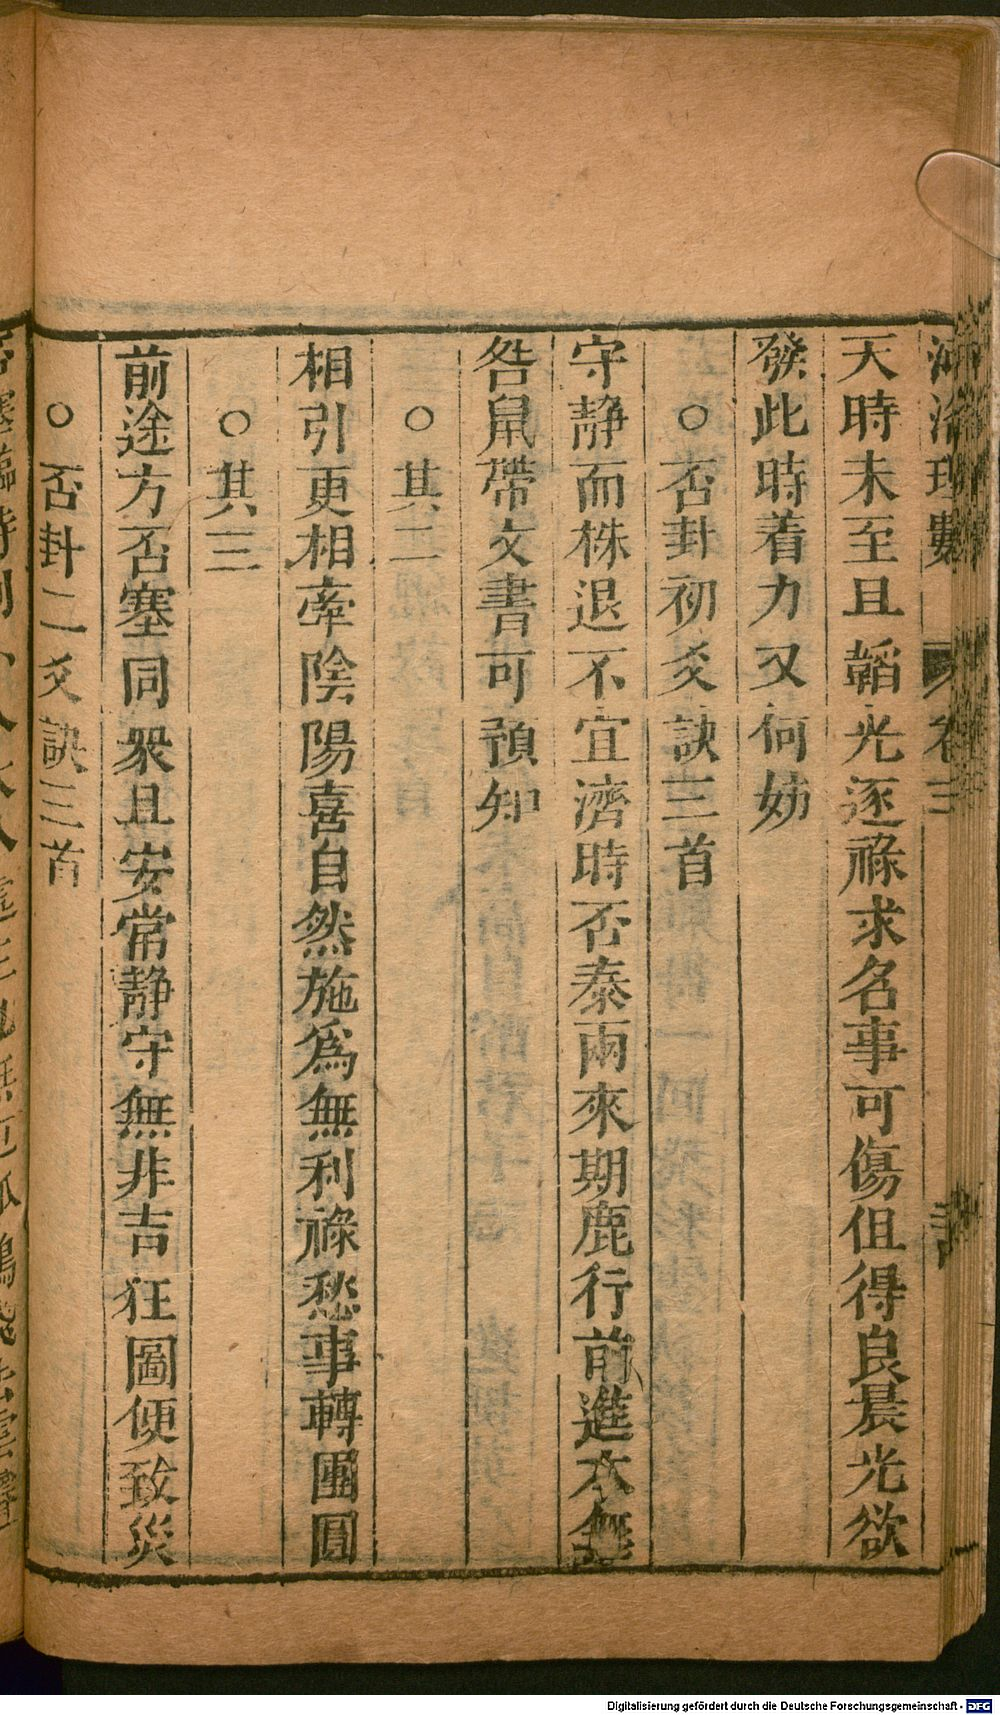 河洛理數 卷三
天時未至且韜光逐祿求名事可傷但得良晨光欲
發此時着力又何妨
○否卦初爻訣三首
守靜而株退不宜濟時否泰兩來期鹿行前進本無
咎鼠帶文書可預知
○其二
相引更相牽陰陽喜自然施爲無利祿愁事轉團圓
○其三
前途方否塞同衆且安常靜守無非吉狂圖便致災
○否卦二爻訣三首
Digitalisierung gefördert durch die Deutsche Forschungsgemeinschaft - DFG